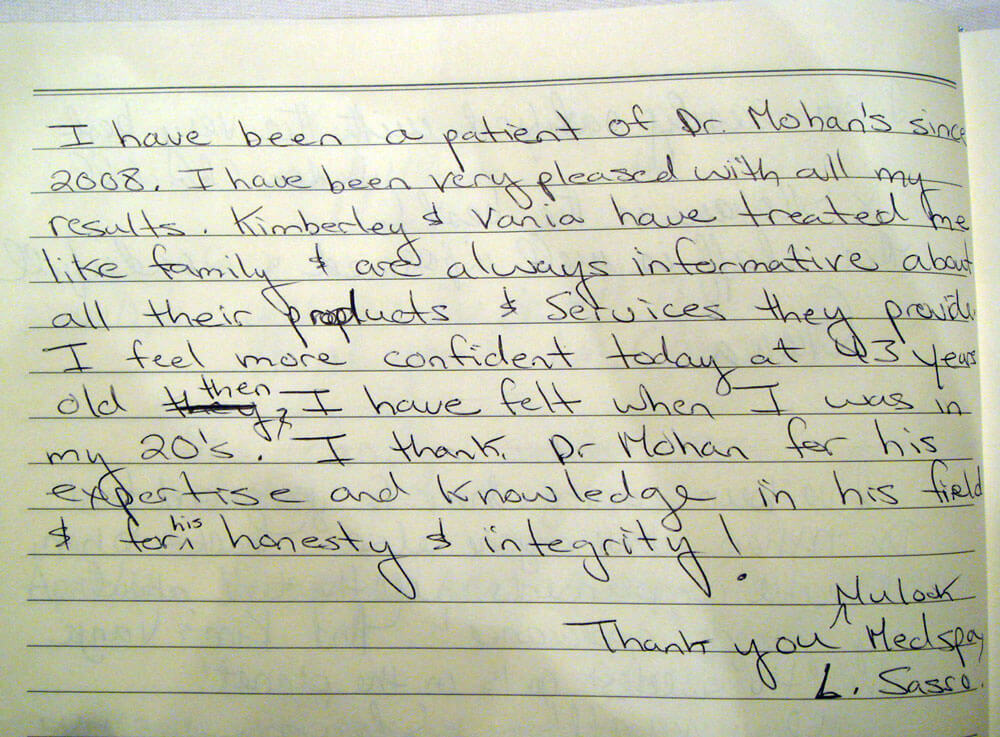 I have been a patient of Dr. Mohan's since
2008. I have been very pleased with all my
results. Kimberley & Vania have treated me
like family & are always informative about
all their products & Services they provide
I feel more confident today at 43 years
old then I have felt when I was in
my 20's. I thank Dr Mohan for his
expertise and knowledge in his field
& for his honesty & integrity!
Thank you Mulock Medspa
L. Sasso.